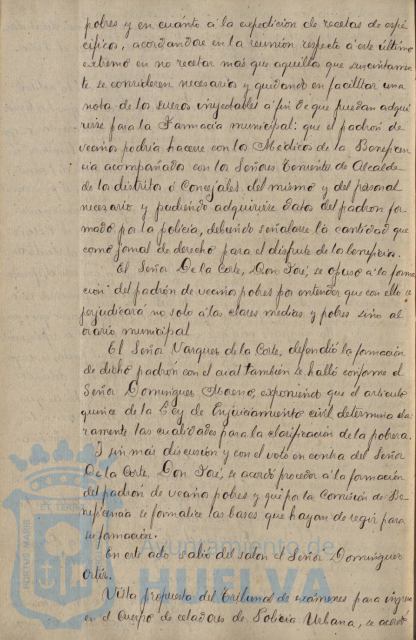 pobres y en cuánto a la expedición de recetas de espe-
cíficos, acordandose en la reunión respecto a este último
extremo en no recetar mas que aquellos que sucintamen-
te se consideren necesarios y quedando en facilitar una
nota de los sueros inyectables a fin de que puedan adqui-
rirse para la Farmacia municipal: que el padrón de
vecinos podria hacerse con los Médicos de la Beneficen-
cia acompañados con los Señores Tenientes de Alcalde
de la distrito ó Concejales del mismo y del personal
necesario y pudiendo adquirirse datos del padron for-
mado por la policia, debiendo señalarse la cantidad que
como jornal dé derecho para el disfrute de los beneficios.
El Señor De la Corte, Don José, se opuso á la forma-
ción del padrón de vecinos pobres por entender que con ello se
perjudicará no solo a las clases medias y pobres sino al
erario municipal
El Señor Vazquez de la Corte, defendió la formación
de dicho padrón con el cual también se halló conforme el
Señor Dominguez Moreno, exponiendo que el articulo
quince de la Ley de Enjuiciamiento civil determina cla-
ramente las cualidades para la clasificación de la pobreza.
Y sin mas discusión y con el voto en contra del Señor
De la Corte, Don José, se acordó proceder a la formación
del padrón de vecinos pobres y que por la Comisión de Be-
neficencia se formalice las bases que hayan de regir para
su formación.
En este acto salió del salon el Señor Dominguez
Ortiz.
Vista propuesta del Tribunal de exámenes para ingreso
en el Cuerpo de celadores de Policia Urbana, se acordó
Ayuntamiento de
HUELVA